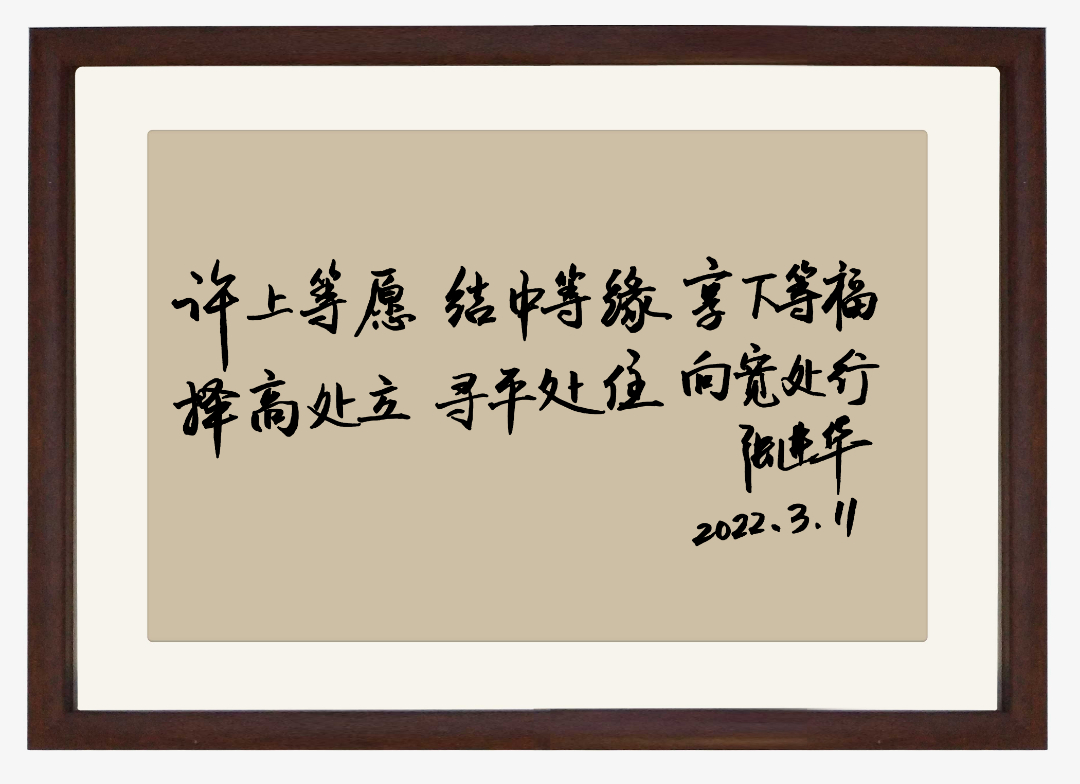 许上等愿 结中等缘 享下等福
择高处立 寻平处住 向宽处行
张建华
2022.3.11